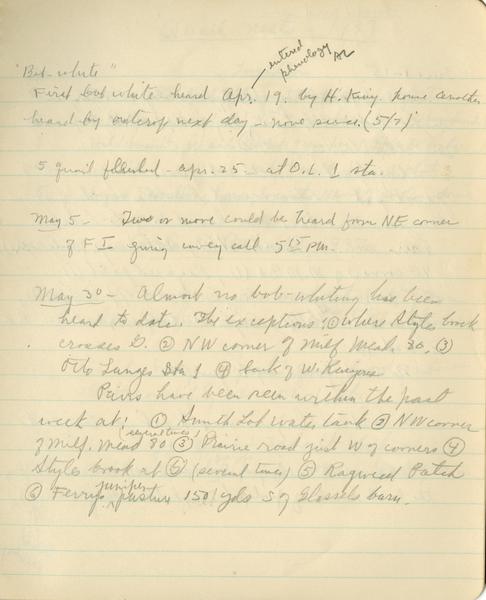 entered
phenology AL
"Bob-white"
First bob white heard Apr. 19. by H. King home another
heard by outcrop next day - none since. (5/7)
5 quail flushed - Apr. 25. at O.L. 1 sta.
May 5 - Two or more could be heard from NE corner
of F I giving covey call 5 15 PM.
May 30 - Almost no bob-whiting has been
heard to date. The exceptions: ① where Styles brook
crosses G. ② NW corner of Milf Mead. 80, ③
Otto Langes Sta 1 ④ back of W.
Pairs have been seen within the past
week at: ① Lot water tank ② NW corner
of Milf. Mead 80 (several times) ③ Prairie road just W of corners ④
Styles brook at (several times) ⑤ Ragweed Patch
⑥ Ferrys juniper pasture 150 yds S of barn.